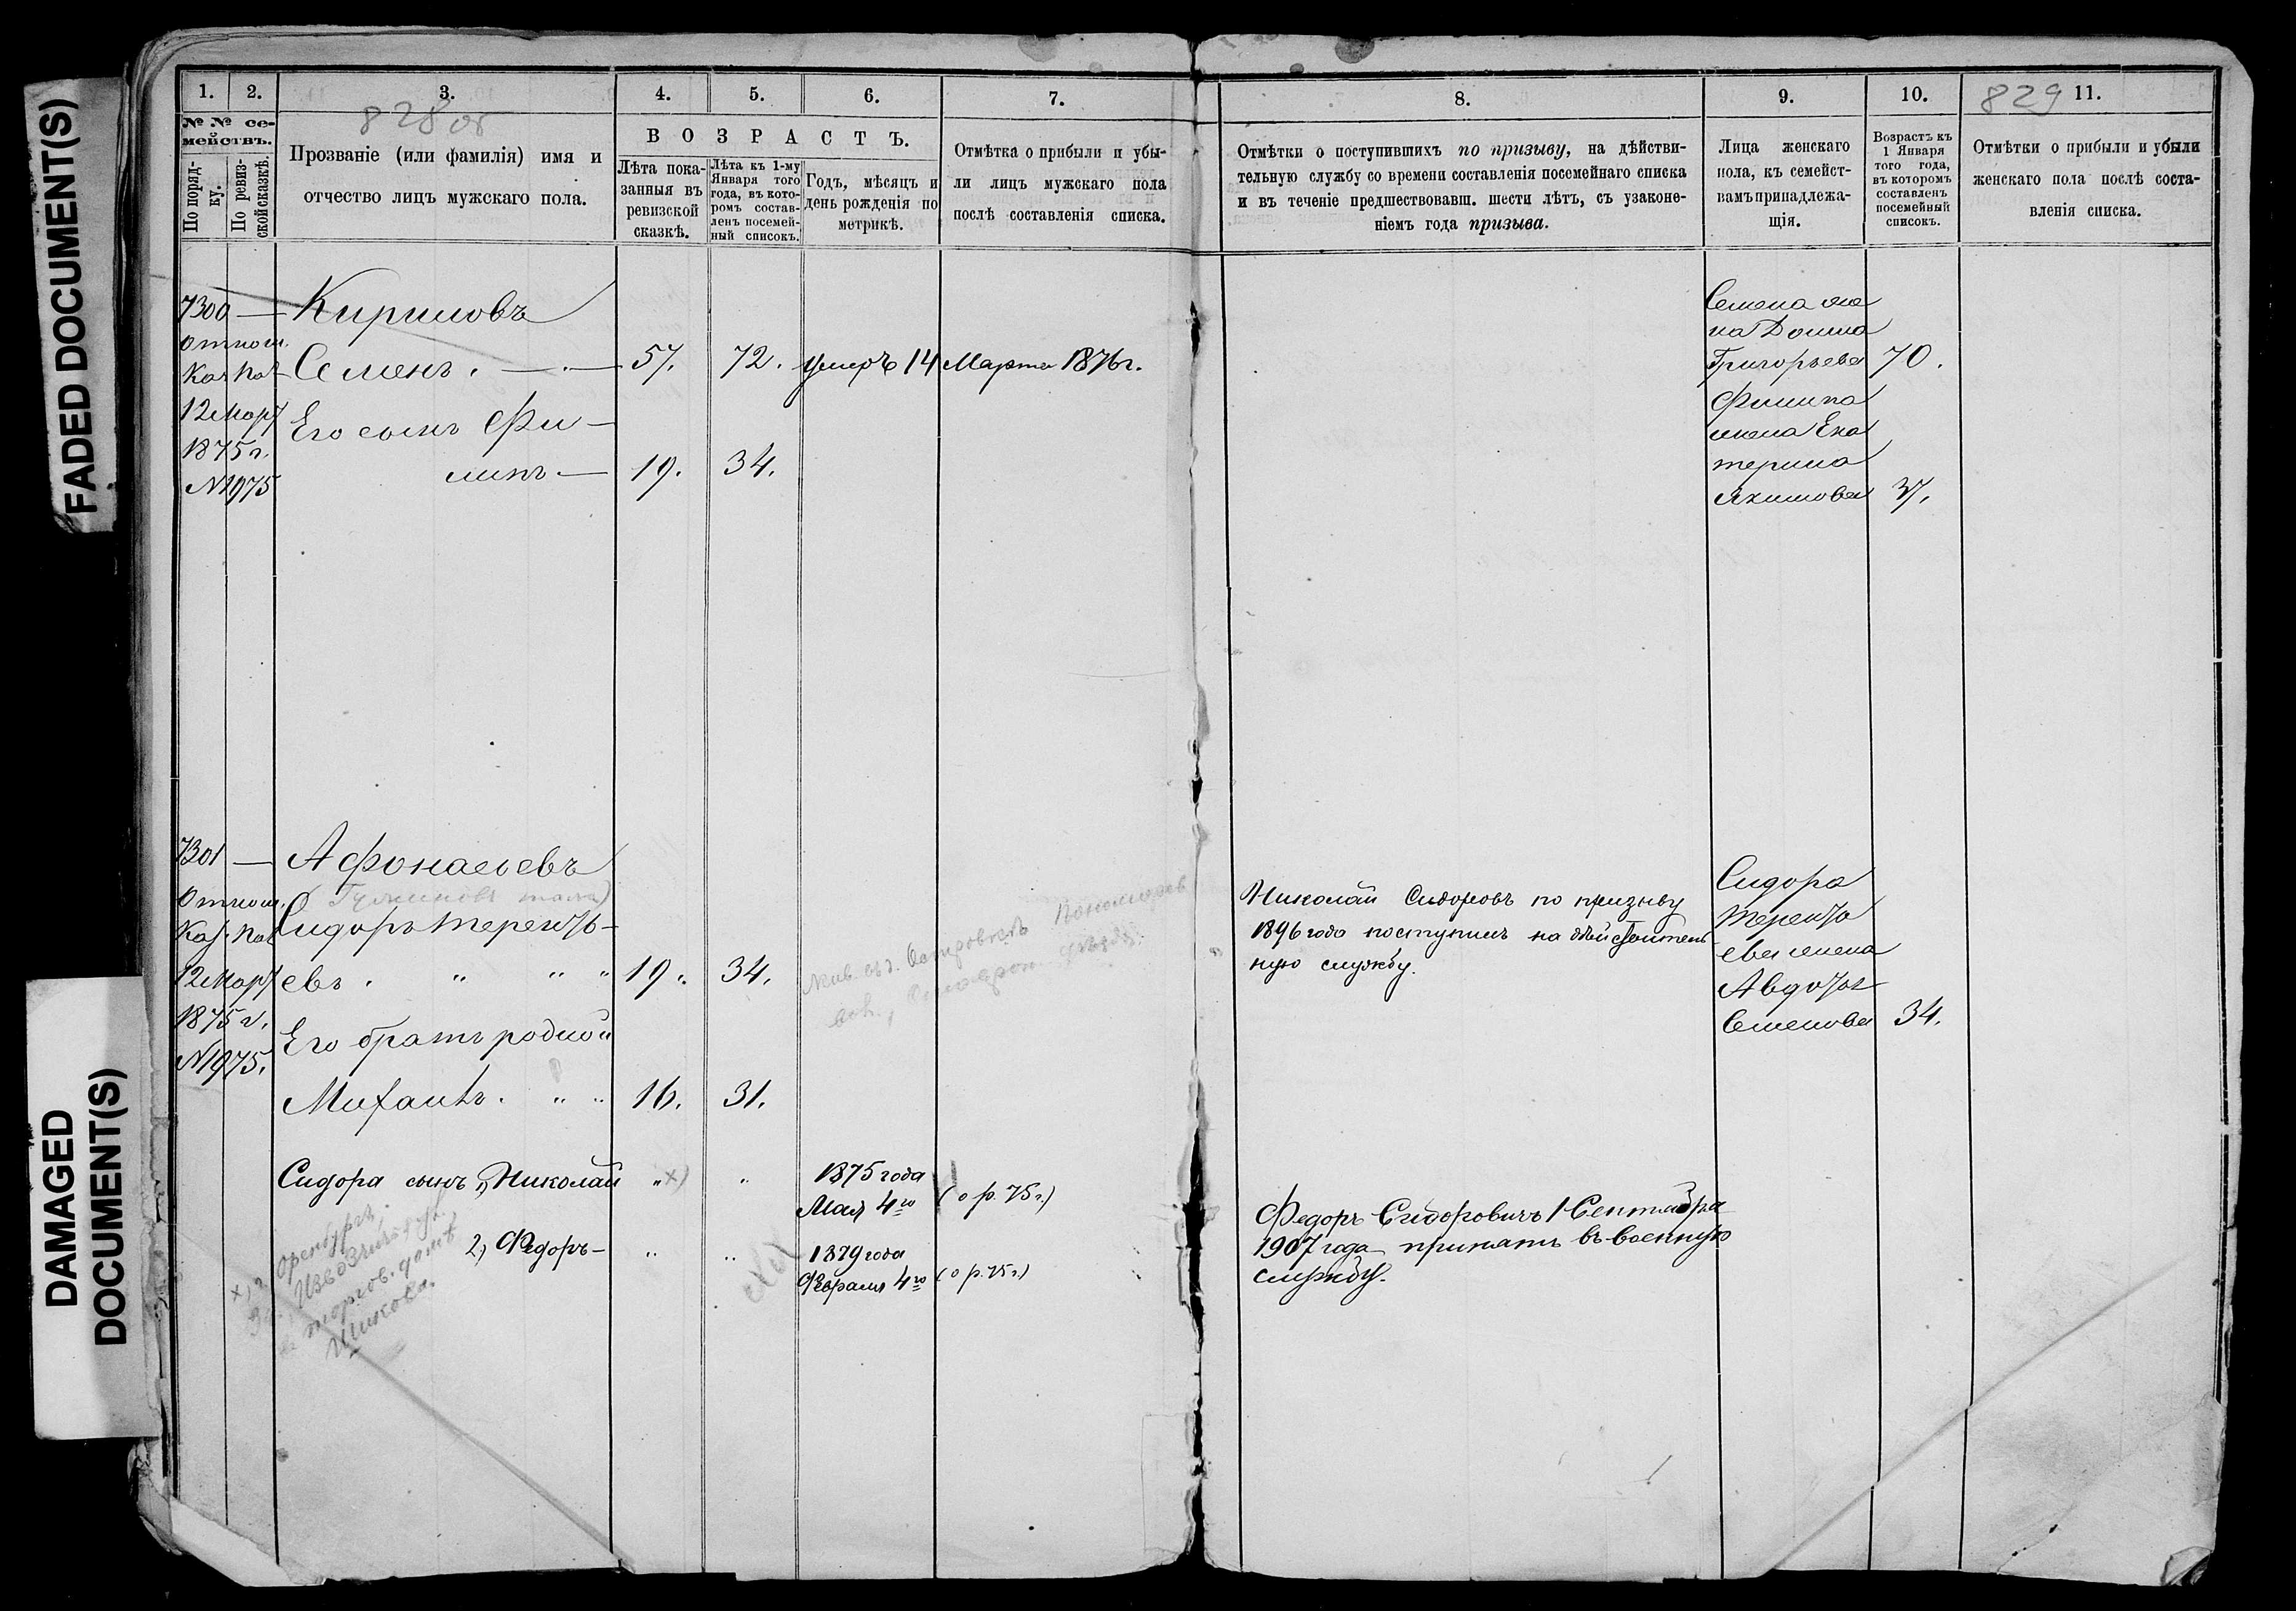 FADED DOCUMENT(S)
DAMAGED
DOCUMENT(S)
1.
2.
3.
4.
5.
6.
7.
828 об
№ № се-
мействъ.
По поряд-
ку.
По ревиз-
ской сказкѣ.
Прозваніе (или фамилія) имя и
отчество лицъ мужскаго пола.
ВОЗРАСТЪ.
Лѣта пока-
занныя въ
ревизской
сказкѣ.
Лѣта къ 1-му
Января того
года, въ кото-
ромъ состав-
ленъ посемей-
ный списокъ.
Годъ, мѣсяцъ и
день рожденія по
метрикѣ.
Отмѣтка о прибыли и убы-
ли лицъ мужскаго пола
послѣ составленія списка.
7300 — Кириловъ
Отнош.
Каз. Пал.
12 Март
1875 г.
№ 1975
Семенъ . — . — 57. 72. умеръ 14 Марта 1876 г.
Его сынъ Фи-
липъ — 19. 34.
7301 — Афонасьевъ
Отнош.
Каз. Пал
12 Март
1875 г.
№ 1975.
Сидоръ Терентьевъ . " " " 19. 34.
Его братъ родной
Мифантъ . " " 16. 31.
Сидора сынъ 1, Николай " х) " 1875 года
Мая 4го (о р. 75 г.)
2, Федоръ — " " 1879 года
Февраля 4го (о р. 75 г.)
х) г. Оренбургъ.
торгов. домъ
Шикова.
8.
9.
10.
829
11.
Отмѣтки о поступившихъ по призыву, на дѣйстви-
тельную службу со времени составленія посемейнаго списка
и въ теченіе предшествовавш. шести лѣтъ, съ узаконе-
ніемъ года призыва.
Лица женскаго
пола, къ семейст-
вамъ принадлежа-
щія.
Возрастъ къ
1 Января
того года,
въ которомъ
составленъ
посемейный
списокъ.
Отмѣтки о прибыли и убыли
женскаго пола послѣ соста-
вленія списка.
Семена же
на Домна
Григорьева 70.
Филипа
жена Ека
терина
Якимова 37.
Николай Сидоровъ по призыву
1896 года поступилъ на дѣйствитель
ную службу.
Сидора
Терентьева жена
Авдотья
Семенова 34.
Федоръ Сидоровичъ 1 Сентября
1907 года принятъ въ военную
службу.